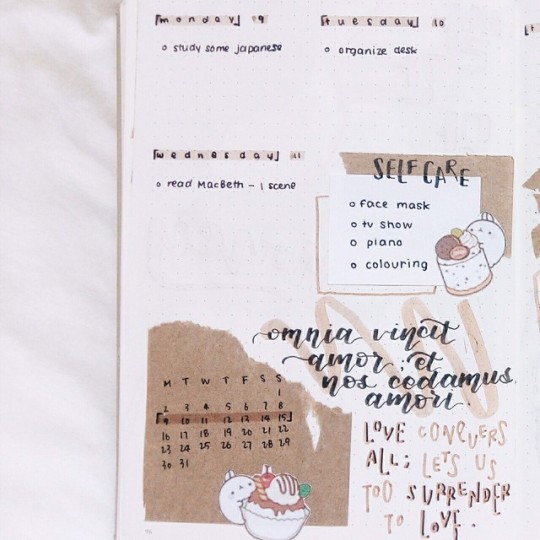 [monday] 9
o study some japanese
[tuesday] 10
o organize desk
[wednesday] 11
o read MacBeth - 1 scene
SELF CARE
o face mask
o tv show
o piano
o colouring
omnia vincit
amor; et
nos cedamus
amori.
M T W T F S S
1
2 3 4 5 6 7 8
[9 10 11 12 13 14 15]
16 17 18 19 20 21 22
23 24 25 26 27 28 29
30 31
LOVE CONQUERS
ALL; LETS US
TOO SURRENDER
TO LOVE.